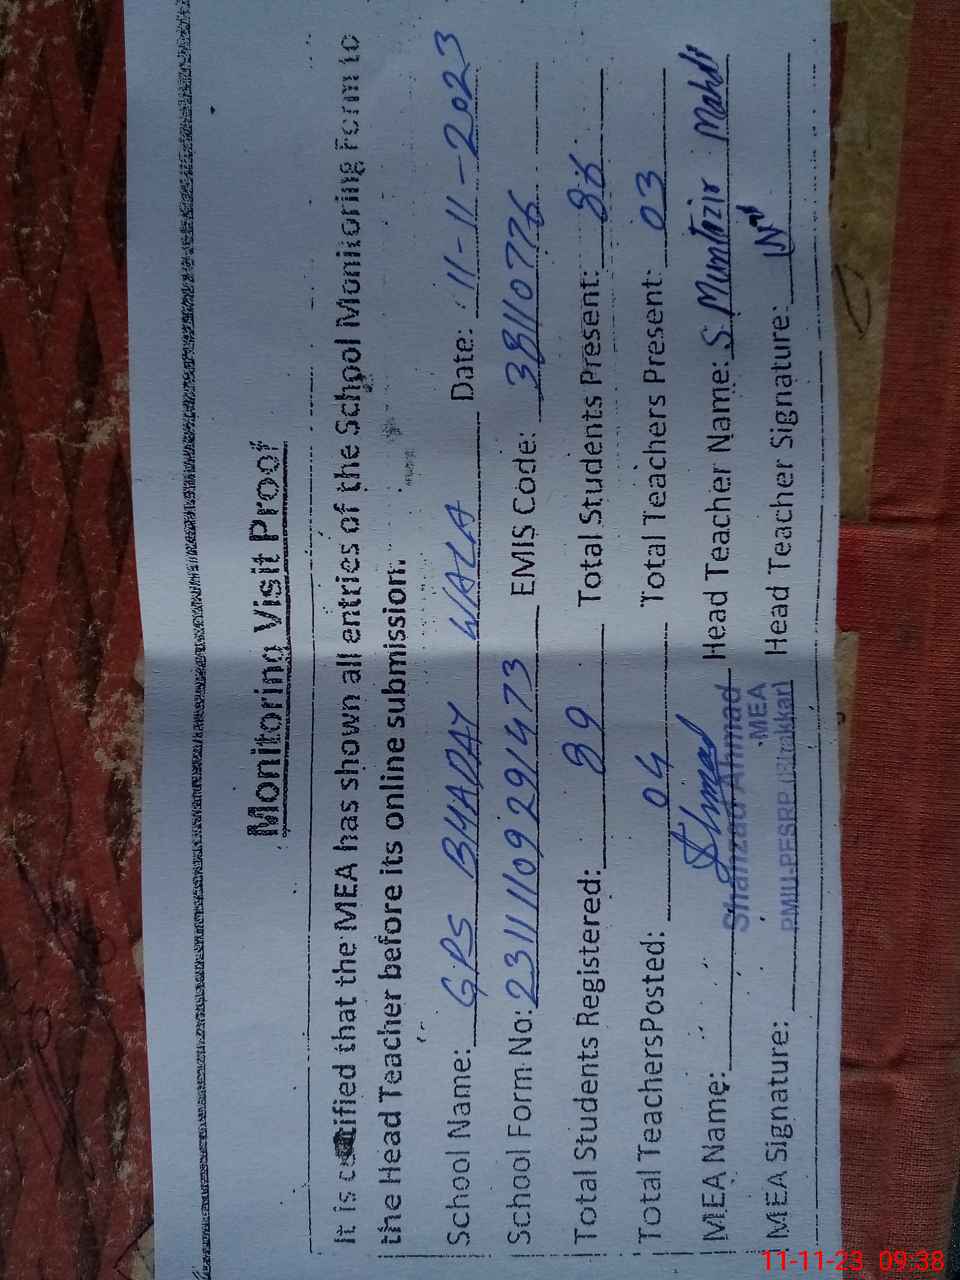 Monitoring Visit Proof
It is certified that the MEA has shown all entries of the School Monitoring Form to
the Head Teacher before its online submission.
School Name: GPS BHADAY WALA Date: 11-11-2023
School Form No: 23111109291473 EMIS Code: 38110776
Total Students Registered: 89 Total Students Present: 86
Total TeachersPosted: 04 Total Teachers Present: 03
MEA Name: Head Teacher Name: S. Muntazir Mahdi
Shahzad Ahmad
MEA
PMIU-PESRP (Bhakkar)
MEA Signature: Head Teacher Signature:
11-11-23 09:38